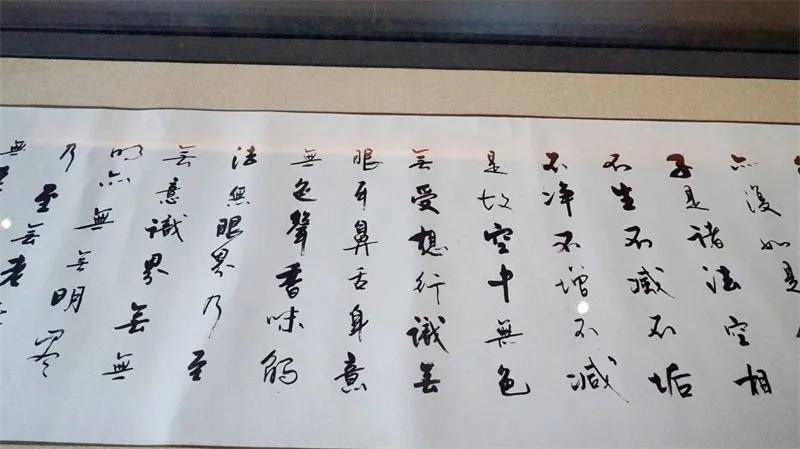 亦復如是
子是諸法空相
不生不滅不垢
不净不增不減
是故空中無色
無受想行識無
眼耳鼻舌身意
無色聲香味觸
法無眼界乃至
無意識界無無
明亦無無明盡
乃至無老
無